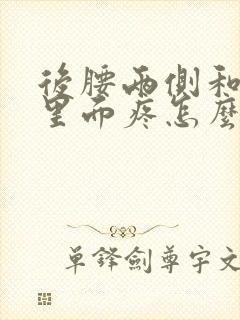 後腰兩側和
里面疼怎麼
單鋒劍尊宇文